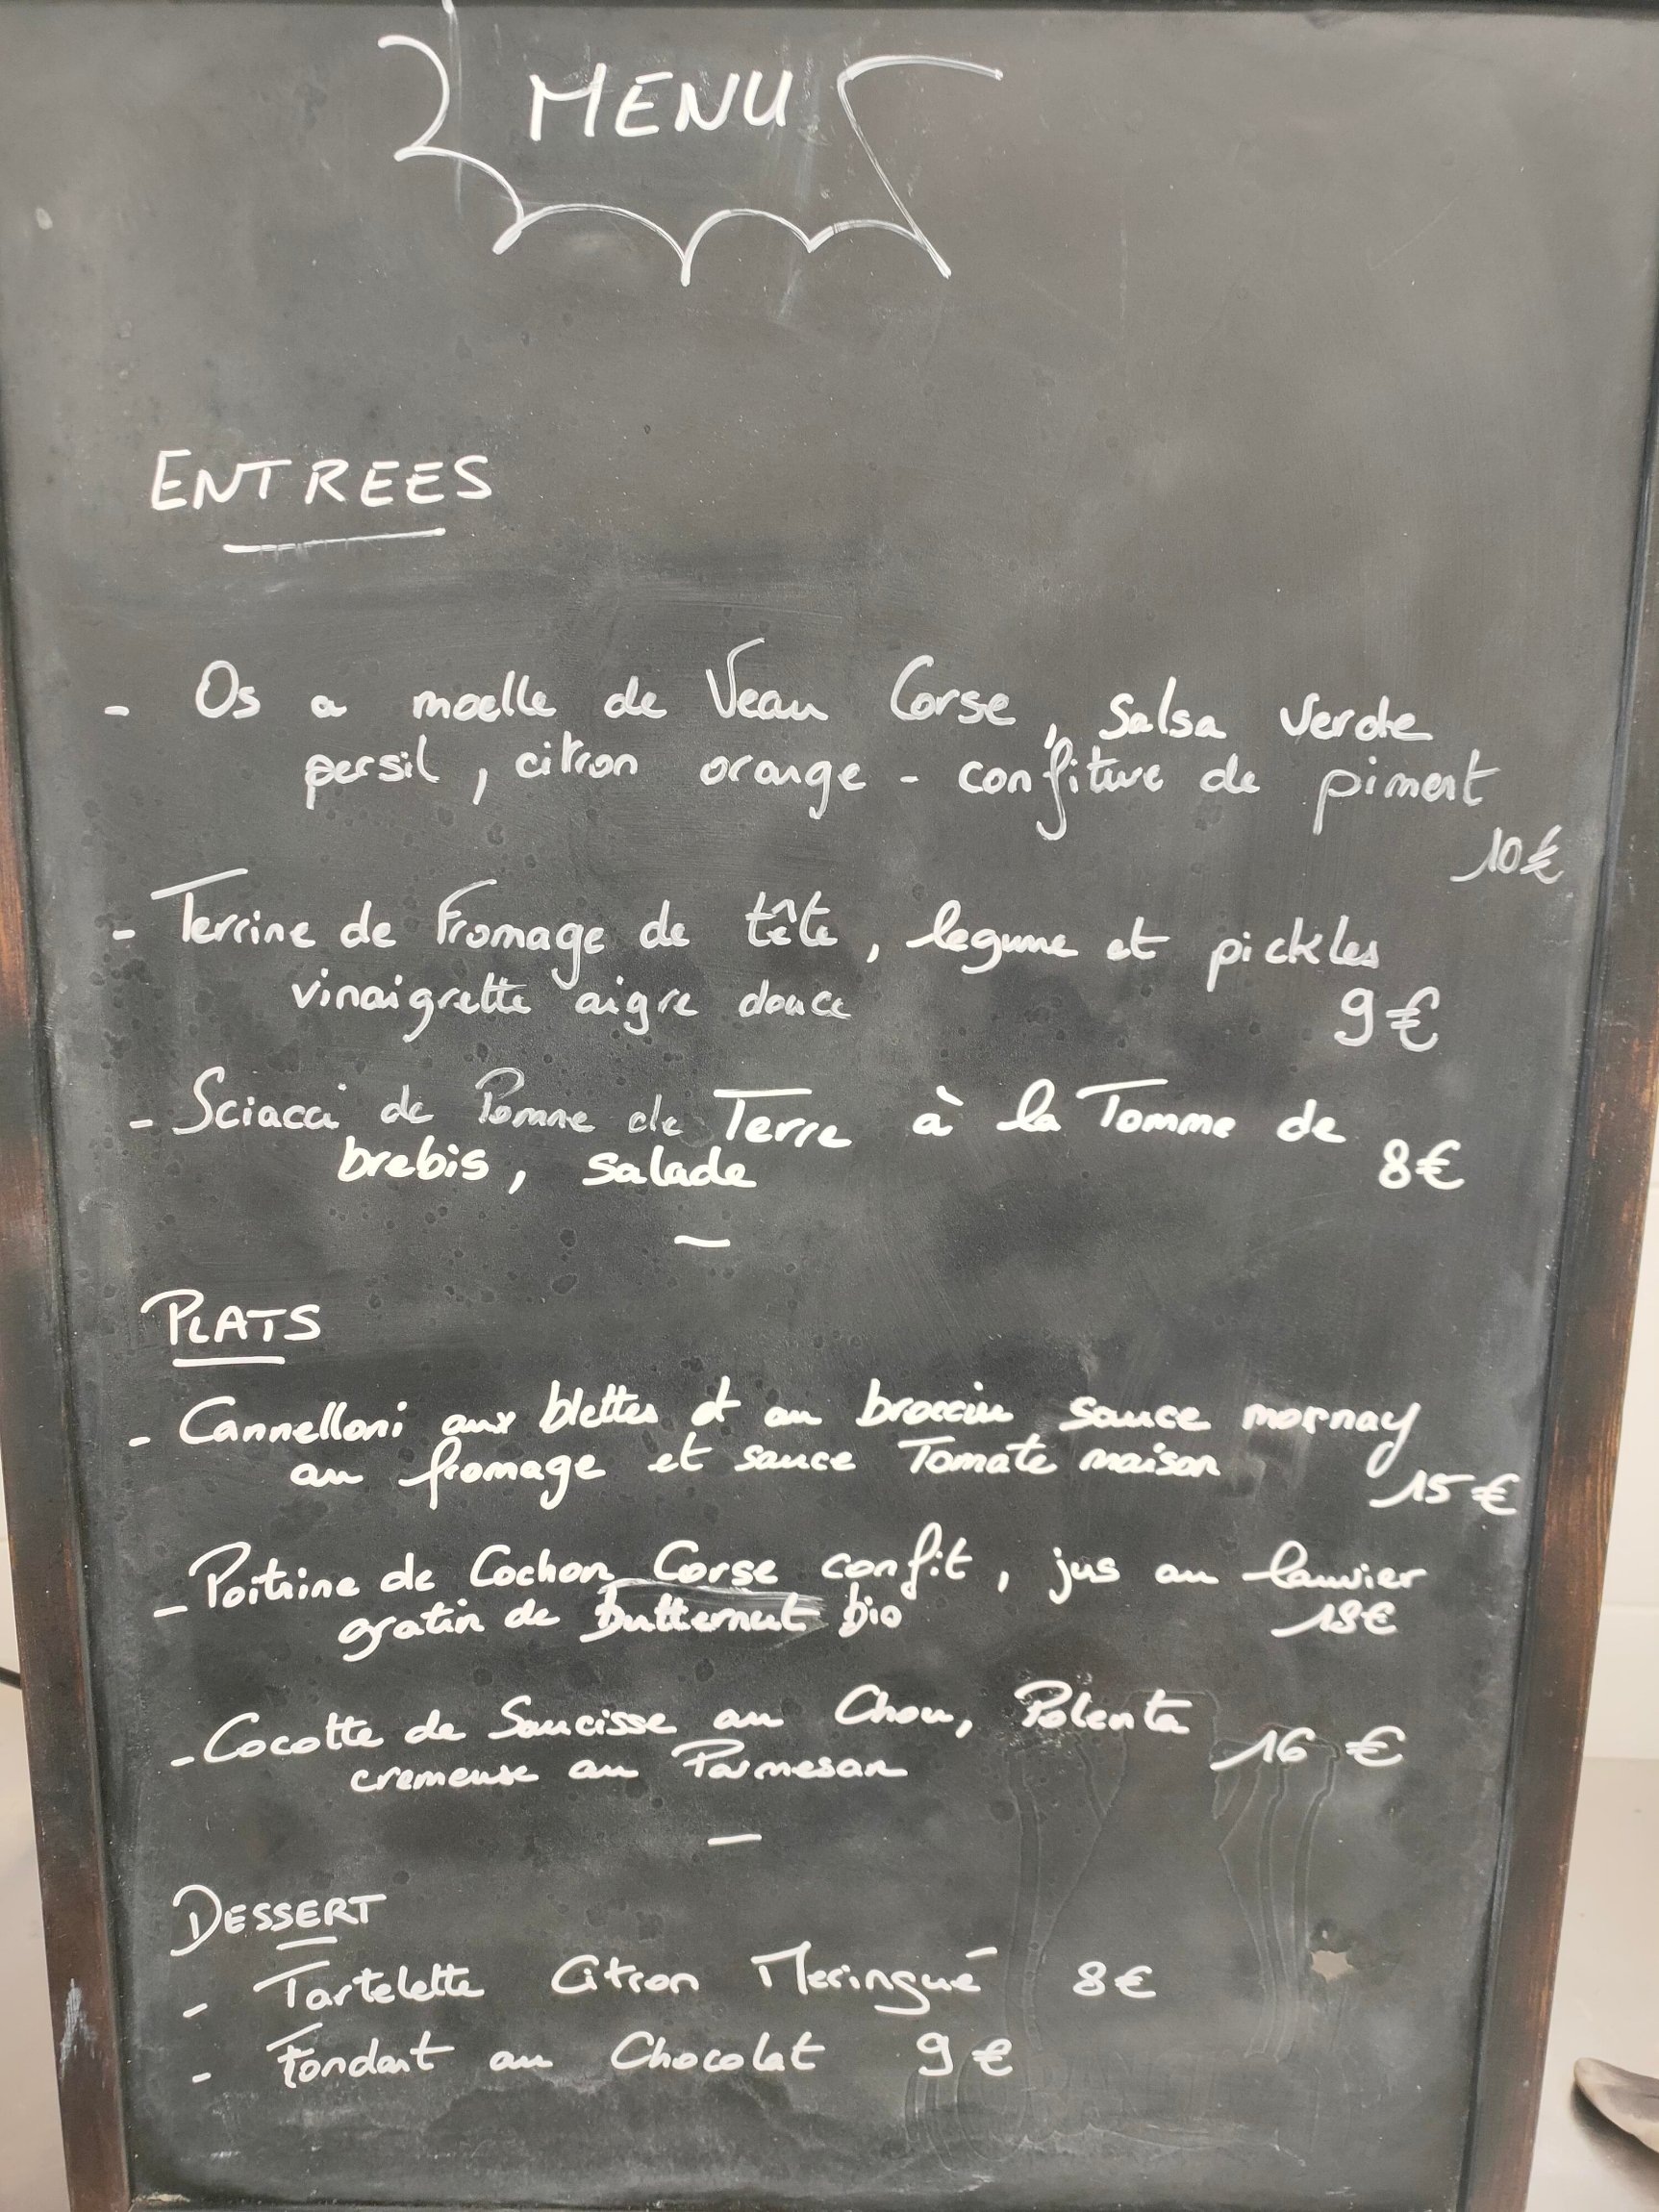 MENU
ENTREES
- Os a moelle de Veau Corse, salsa verde
persil, citron orange - confiture de piment
10€
- Terrine de Fromage de tête, legume et pickles
vinaigrette aigre douce 9€
- Sciacci de Pomme de Terre à la Tomme de
brebis, salade 8€
—
PLATS
- Cannelloni aux blettes et au broccin sauce mornay
au fromage et sauce Tomate maison 15€
- Poitrine de Cochon Corse confit, jus au laurier
gratin de Butternut bio 18€
- Cocotte de Saucisse au Chou, Polenta
cremeuse au Parmesan 16 €
—
DESSERT
- Tartelette Citron Meringué 8€
- Fondant au Chocolat 9€